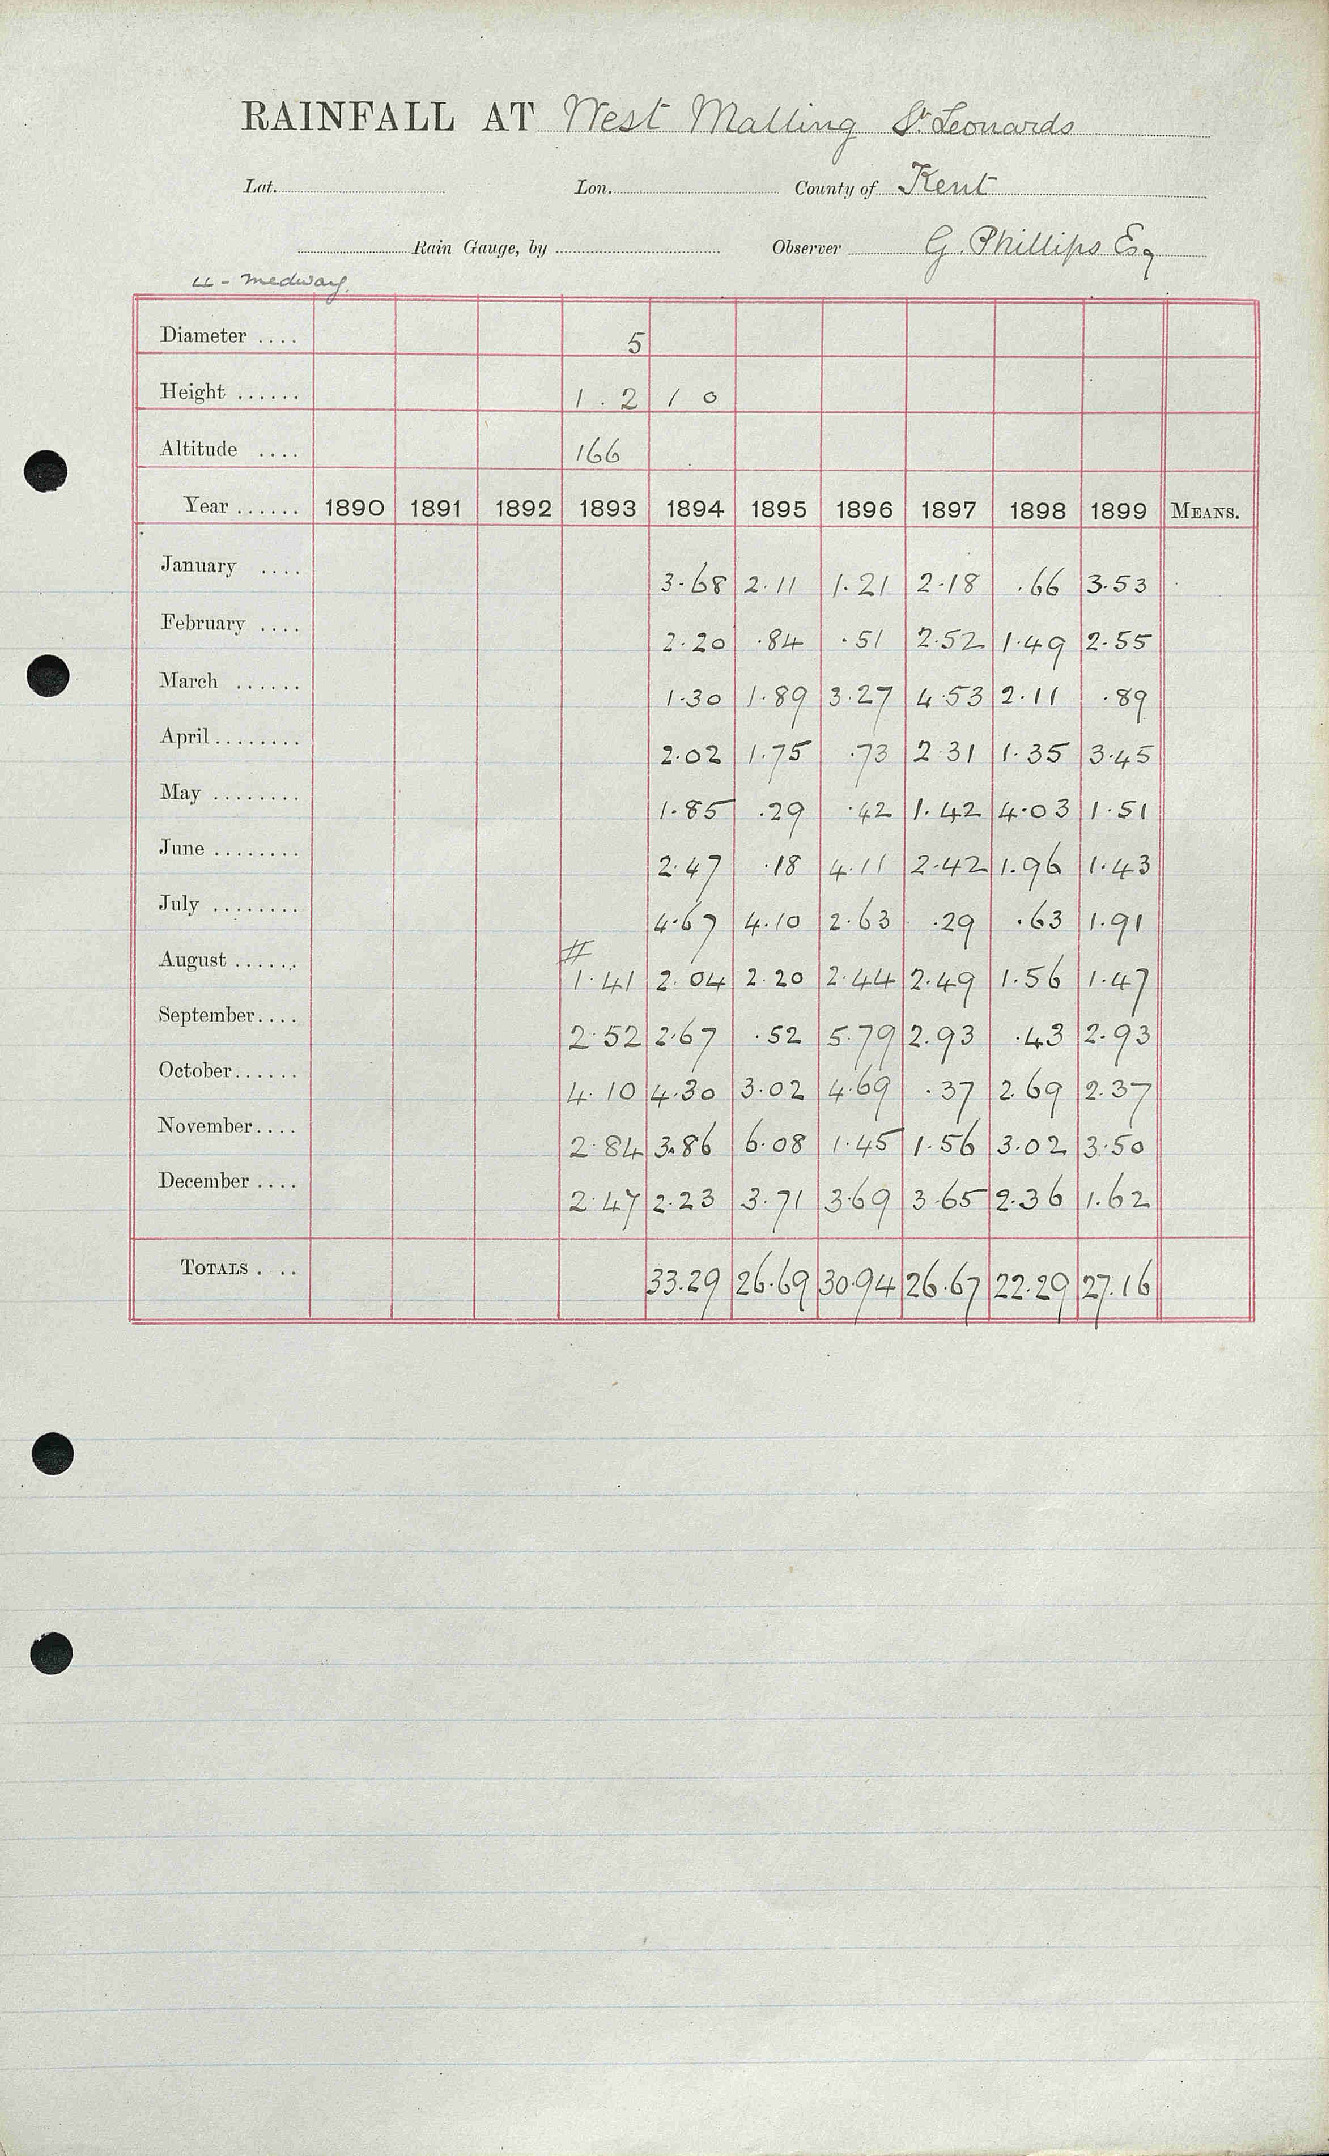 RAINFALL AT West Malling St Leonards
Lat. Lon. County of Kent
Rain Gauge, by Observer G. Phillips Esq
Medway.
Diameter .... 5
Height ...... 1 . 2 1 0
Altitude .... 166
Year ...... 1890 1891 1892 1893 1894 1895 1896 1897 1898 1899 MEANS.
January .... 3.68 2.11 1.21 2.18 .66 3.53
February .... 2.20 .84 .51 2.52 1.49 2.55
March ...... 1.30 1.89 3.27 4.53 2.11 .89
April ........ 2.02 1.75 .73 2.31 1.35 3.45
May ........ 1.85 .29 .42 1.42 4.03 1.51
June ........ 2.47 .18 4.11 2.42 1.96 1.43
July ........ 4.67 4.10 2.63 .29 .63 1.91
#
August ...... 1.41 2.04 2.20 2.44 2.49 1.56 1.47
September.... 2.52 2.67 .52 5.79 2.93 .43 2.93
October...... 4.10 4.30 3.02 4.69 .37 2.69 2.37
November.... 2.84 3.86 6.08 1.45 1.56 3.02 3.50
December .... 2.47 2.23 3.71 3.69 3.65 2.36 1.62
TOTALS . .. 33.29 26.69 30.94 26.67 22.29 27.16